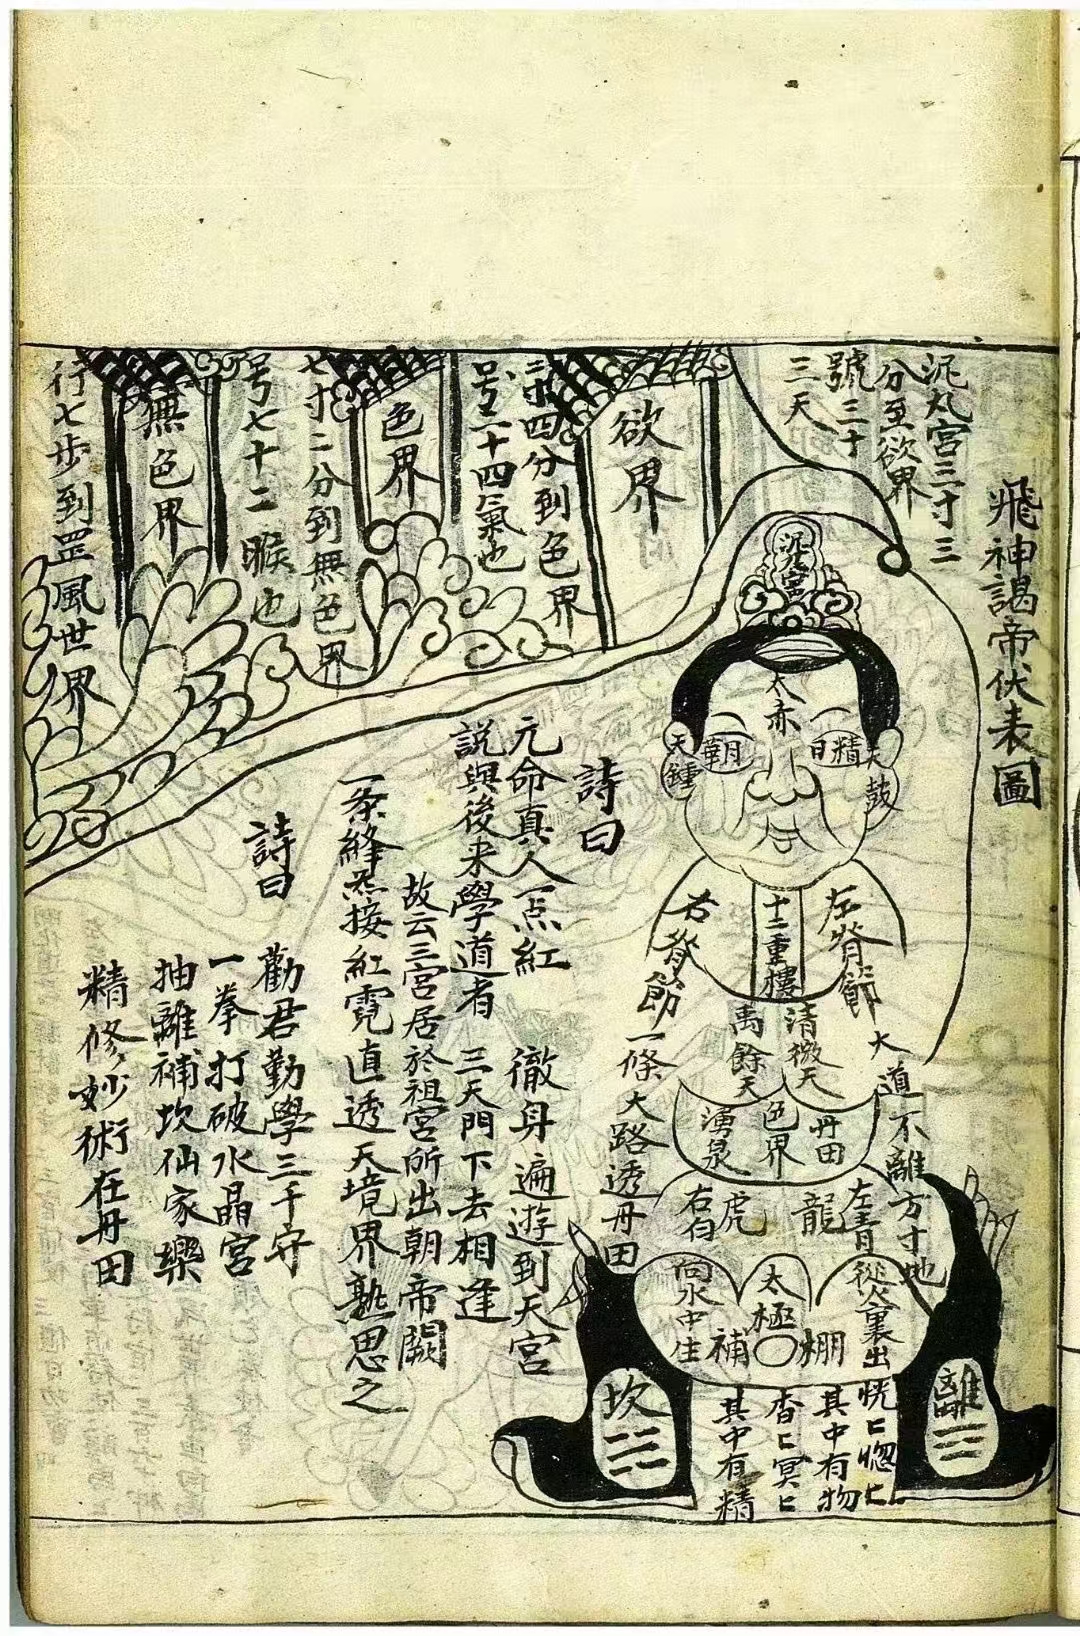 飛神謁帝伏表圖
泥丸宮三寸三
分至欲界
號三十
三天
欲界
二寸四分到色界
号二十四氣也
色界
七寸二分到無色界
号七十二候也
無色界
行七步到罡風世界
泥丸宮
太赤
日精
月華
天鼓
天鍾
十二重樓
左脊節
右脊節
清微天
禹餘天
丹田
色界
湧泉
大道不離方寸地
一條大路透丹田
左青龍
右白虎
從火裏出
向水中生
太極
棚
補
離
坎
恍〻惚〻
其中有物
杳〻冥〻
其中有精
詩曰
元命真人一点紅 徹身遍遊到天宮
説與後来學道者 三天門下去相逢
故云三宮居於祖宮所出朝帝闕
一条絳炁接紅霓直透天境界熟思之
詩曰
勸君勤學三千守
一拳打破水晶宮
抽離補坎仙家樂
精修妙術在丹田